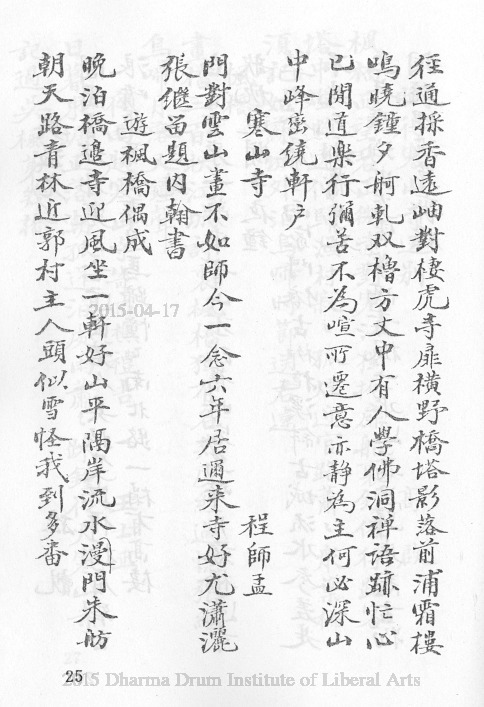 徑通採香遠岫對棲虎寺扉橫野橋塔影落前浦霜樓
鳴曉鍾夕舸軋双櫓方丈中有人學佛洞禅語跡忙心
已閒道樂行彌苦不為喧所遷意亦静為主何必深山
中峰巒繞軒户
寒山寺
程師孟
門對雲山畫不如師今一念六年居邇来寺好尤瀟灑
張继留題内翰書
遊楓橋偶成
晚泊橋邉寺迎風坐一軒好山平隔岸流水漫門朱舫
朝天路青林近郭村主人頭似雪怪我到多番
2015-04-17
25
2015 Dharma Drum Institute of Liberal Arts